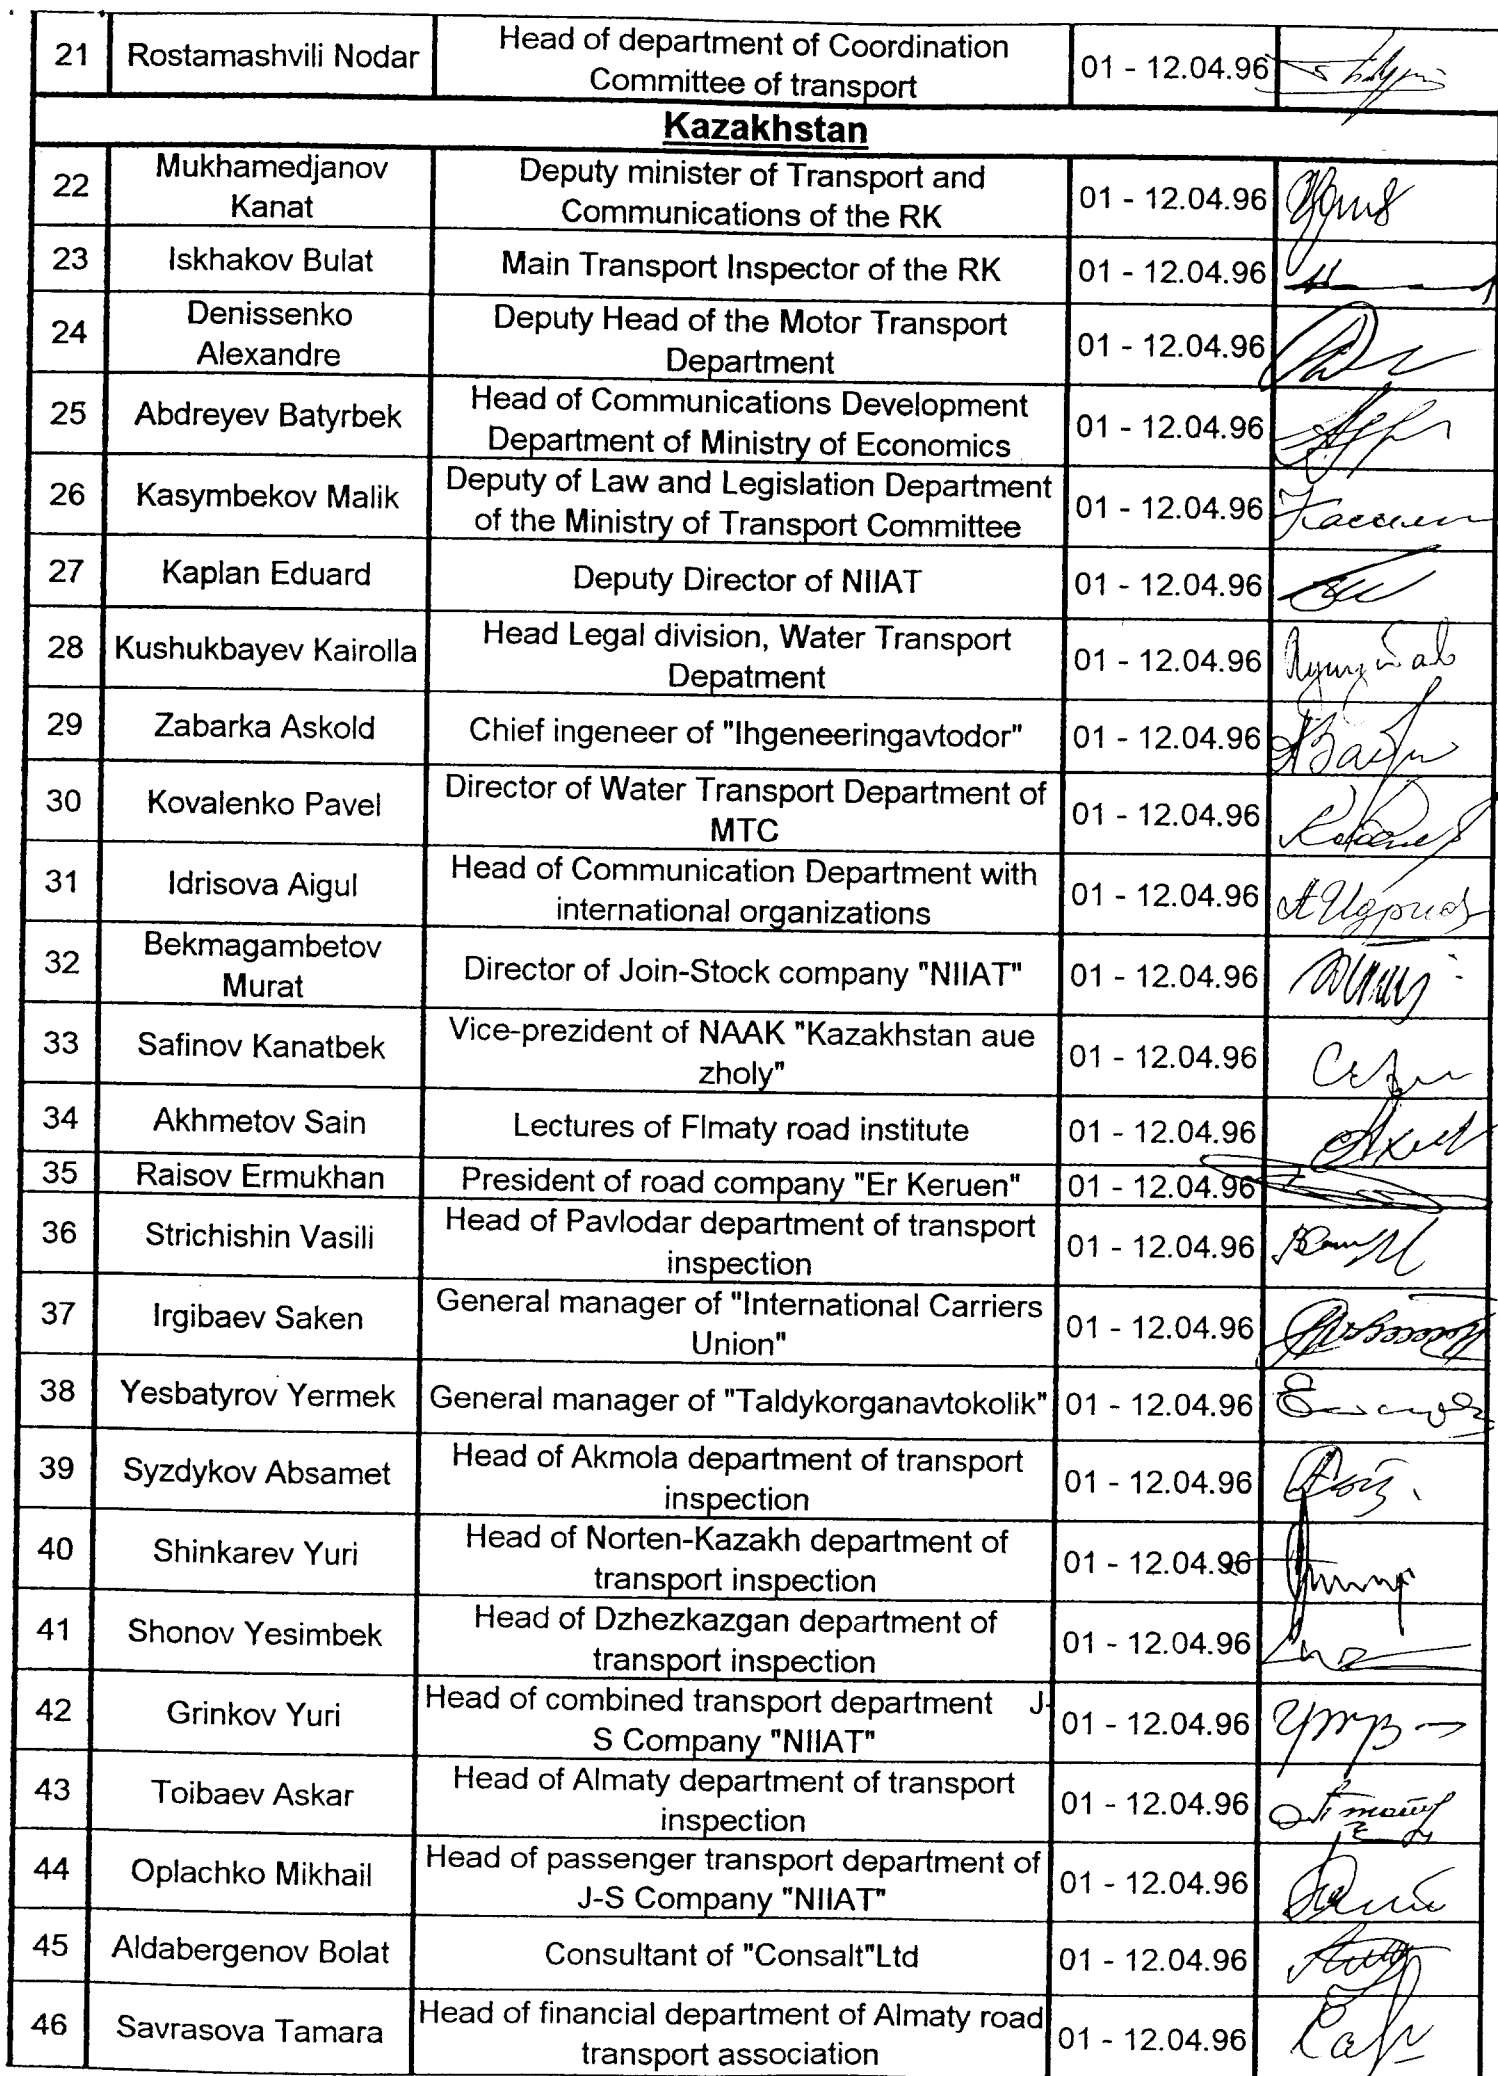 21 Rostamashvili Nodar Head of department of Coordination 01 - 12.04.96
Committee of transport
Kazakhstan
22 Mukhamedjanov Deputy minister of Transport and 01 - 12.04.96
Kanat Communications of the RK
23 Iskhakov Bulat Main Transport Inspector of the RK 01 - 12.04.96
24 Denissenko Deputy Head of the Motor Transport 01 - 12.04.96
Alexandre Department
25 Abdreyev Batyrbek Head of Communications Development 01 - 12.04.96
Department of Ministry of Economics
26 Kasymbekov Malik Deputy of Law and Legislation Department 01 - 12.04.96
of the Ministry of Transport Committee
27 Kaplan Eduard Deputy Director of NIIAT 01 - 12.04.96
28 Kushukbayev Kairolla Head Legal division, Water Transport 01 - 12.04.96
Depatment
29 Zabarka Askold Chief ingeneer of "Ihgeneeringavtodor" 01 - 12.04.96
30 Kovalenko Pavel Director of Water Transport Department of 01 - 12.04.96
MTC
31 Idrisova Aigul Head of Communication Department with 01 - 12.04.96
international organizations
32 Bekmagambetov Director of Join-Stock company "NIIAT" 01 - 12.04.96
Murat
33 Safinov Kanatbek Vice-prezident of NAAK "Kazakhstan aue 01 - 12.04.96
zholy"
34 Akhmetov Sain Lectures of Flmaty road institute 01 - 12.04.96
35 Raisov Ermukhan President of road company "Er Keruen" 01 - 12.04.96
36 Strichishin Vasili Head of Pavlodar department of transport 01 - 12.04.96
inspection
37 Irgibaev Saken General manager of "International Carriers 01 - 12.04.96
Union"
38 Yesbatyrov Yermek General manager of "Taldykorganavtokolik" 01 - 12.04.96
39 Syzdykov Absamet Head of Akmola department of transport 01 - 12.04.96
inspection
40 Shinkarev Yuri Head of Norten-Kazakh department of 01 - 12.04.96
transport inspection
41 Shonov Yesimbek Head of Dzhezkazgan department of 01 - 12.04.96
transport inspection
42 Grinkov Yuri Head of combined transport department J- 01 - 12.04.96
S Company "NIIAT"
43 Toibaev Askar Head of Almaty department of transport 01 - 12.04.96
inspection
44 Oplachko Mikhail Head of passenger transport department of 01 - 12.04.96
J-S Company "NIIAT"
45 Aldabergenov Bolat Consultant of "Consalt"Ltd 01 - 12.04.96
46 Savrasova Tamara Head of financial department of Almaty road 01 - 12.04.96
transport association